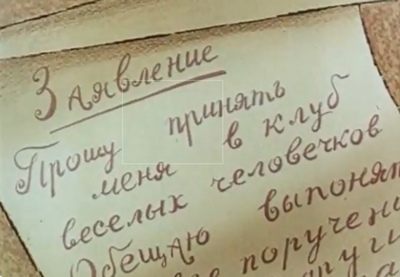 Заявление
Прошу принять
меня в клуб
веселых человечков
Обещаю выпонят
поручени